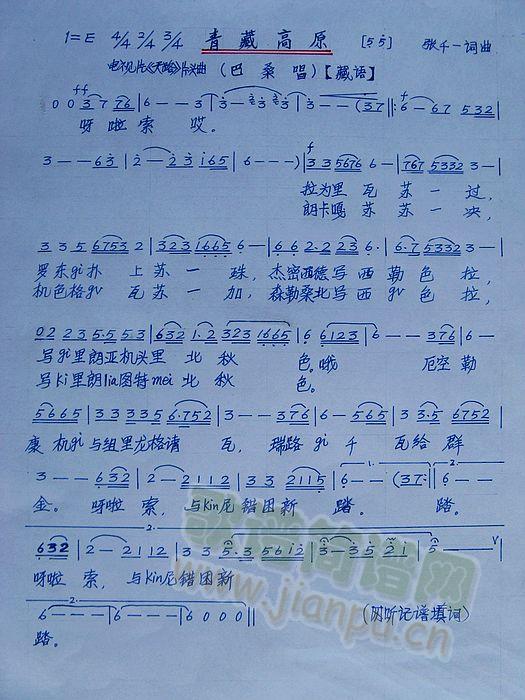 1=E 4/4 2/4 3/4 青藏高原 [5 5] 张千一词曲
电视片《天路》片头曲 (巴桑唱)【藏语】
ff f
0 0 3 7 7 6 | 6 - - 3 | 3 - 3 3 3 | 3 - - - (3 7 ‖: 6 - 6 7 5 3 2 |
呀啦索 哎。
3 - - 6 3 | 2 - 2 3 1 6 5 | 6 - - - ) | 3 3 5 6 7 6 6 - | 7 6 7 5 3 3 2 3 - |
拉为里瓦苏一过,
朗卡嘎苏苏一决,
3 3 5 6 7 5 3 2 | 3 2 3 1 6 6 5 6 - | 6 6 2·2 2 3 6 - | 6·7 5 3 3 2 3 - |
罗东gi扑上苏一珠,杰密西德写西勒色拉,
机色格gv瓦苏一加,森勒桑北写西gv色拉,
0 2 2 3 5·5 5 3 | 6 3 2 1·2 3 2 3 1 6 6 5 | 6 6 1 2 3 6 | 6 - - 3 7 6 | 6 - -
写gi里朗亚机头里北秋色。哦 厄空勒
写ki里朗lia图特mei北秋色。
5 6 6 5 | 3 3 3 3 5 6·7 5 2 | 3 - - 3 7 6 | 6 - 5 6 5 | 3 3·5 6 7 5 2 |
康机gi与组里尤格请瓦,瑞路gi千瓦给群
3 - - 6 3 2 | 2 - 2 1 1 2 | 3 3 2 1 1 5 | 6 - - (3 7 :‖ 6 - - -
金。呀啦索,与kin尼错困新踏。踏。
6 3 2 | 2 - 2 1 1 2 | 3 3 5·3 5 6 1 2 | 3 - 3 5 2 1 | 5 - - - V
呀啦索,与kin尼错困新
6 - - - | 6 - - - | 6 0 0 0 ‖ (附听记谱填词)
踏。
歌谱简谱网
www.jianpu.cn